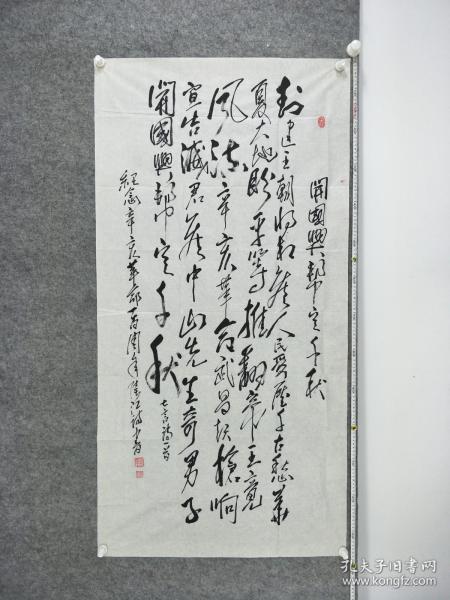 開國興邦定千秋
封建王朝將相侯人民受壓千古愁華
夏大地盼平等推翻帝王竟
風流辛亥革命武昌起槍响
宣告滅君侯中山先生奇男子
開國興邦定千秋
七言詩一首
紀念辛亥革命一百周年
孔夫子旧书网
www.kongfz.com